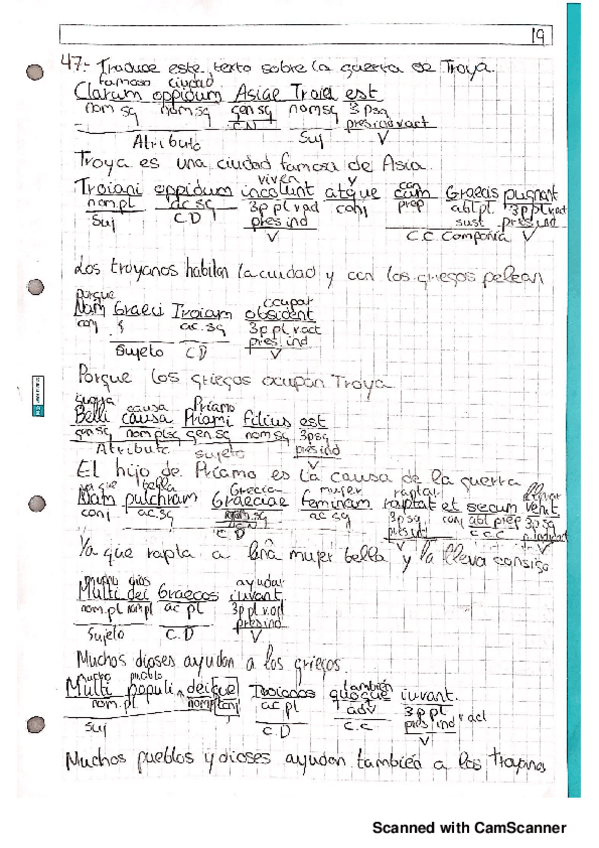 19
47.- Traduce este texto sobre la guerra de Troya.
famoso ciudad
Clarum oppidum Asiae Troia est
nom sg nom sg gen sg nom sg 3 psg
C.N pres ind v act
Atributo Suj V
Troya es una ciudad famosa de Asia.
viven y con
Troiani oppidum incolunt atque cum Graecis pugnant
nom.pl ac sg 3p pl v.ad conj prep abl pl. 3p pl v.act
Suj C.D pres ind sust pres ind
V C.C. Compañía V
Los troyanos habitan la ciudad y con los griegos pelean
Porque ocupar
Nam Graeci Troiam obsident
conj ac. sg 3p pl v.act
Sujeto C D pres ind
V
Porque los griegos ocupan Troya
guerra causa Príamo
Belli causa Priami filius est
gen sg nom sg gen sg nom sg 3p sg
Atributo sujeto pres ind
V
El hijo de Príamo es la causa de la guerra
ya que bella Grecia mujer raptar llevar
Nam pulchram Graeciae feminam raptat et secum vehit
conj ac.sg ac sg 3p sg conj abl prep 3p sg
C D pres ind C.C.C
V V
Ya que rapta a una mujer bella y la lleva consigo
mucho dios ayudar
Multi dei Graecos iuvant
nom.pl nom pl ac pl 3p pl v.act
Sujeto C.D pres ind
V
Muchos dioses ayudan a los griegos.
mucho pueblo también
Multi populi, deique quoque iuvant.
nom. pl nom pl conj ac pl adv 3 p pl
Suj C.D C.C pres ind v act
V
Muchos pueblos y dioses ayudan también a los troyanos
Scanned with CamScanner